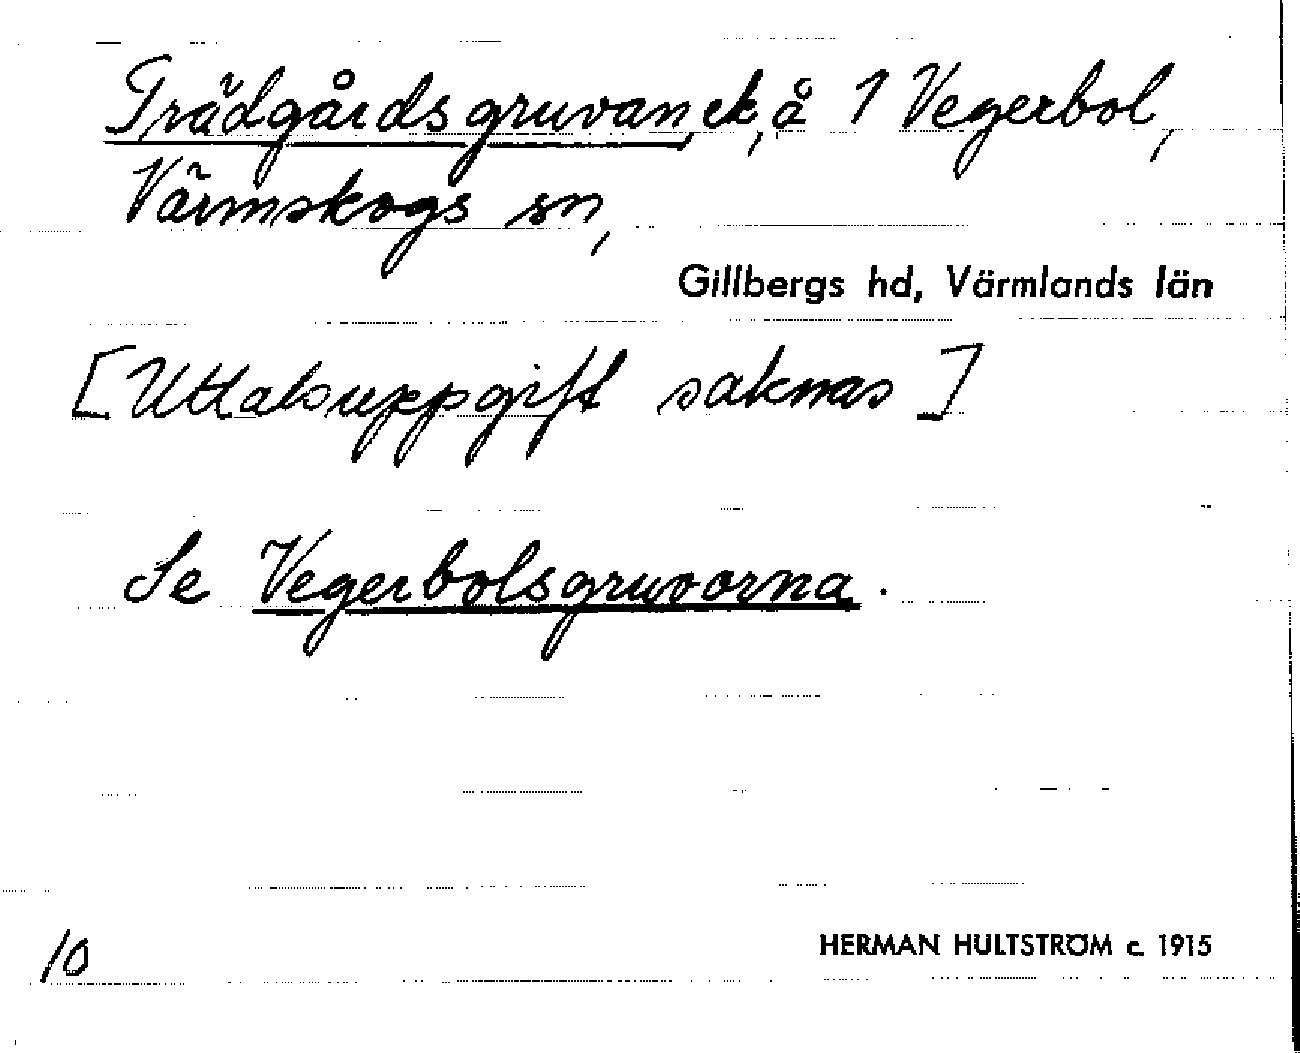 Trädgårdsgruvan, ek, å 1 Vegerbol,
Värmskogs sn,
Gillbergs hd, Värmlands län
[Uttalsuppgift saknas]
Se Vegerbolsgruvorna.
10
HERMAN HULTSTRÖM c. 1915